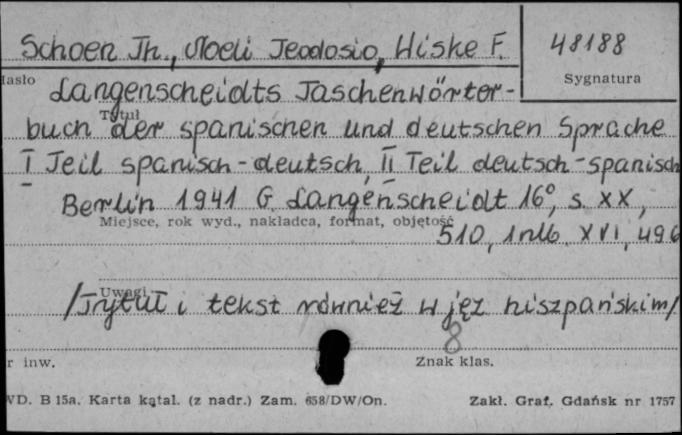 Schoen Th., Noeli Teodosio, Hiske F.
48188
Hasło
Sygnatura
Langenscheidts Taschenwörter-
Tytuł
buch der spanischen und deutschen Sprache
I Teil spanisch-deutsch, II Teil deutsch-spanisch
Berlin 1941 G. Langenscheidt 16°, s. XX,
Miejsce, rok wyd., nakładca, format, objętość
510, 1nlb. XVI, 496
Uwagi
/Tytuł i tekst również w jęz hiszpańskim/
8
r inw.
Znak klas.
WD. B 15a. Karta katal. (z nadr.) Zam. 658/DW/On.
Zakł. Graf. Gdańsk nr 1757